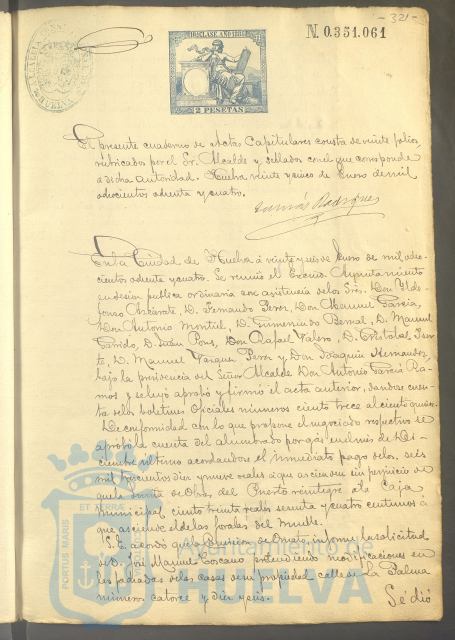 - 321 -
N. 0.351.061
2 PESETAS
El presente cuaderno de Actas Capitulares consta de veinte folios,
rubricados por el Sr. Alcalde y sellados con el que corresponde
a dicha autoridad. Huelva veinte y cinco de Enero de mil
ochocientos ochenta y cuatro.
En la Ciudad de Huelva á veinte y seis de Enero de mil ocho-
cientos ochenta y cuatro. Se reunió el Excmo. Ayuntamiento
en sesion publica ordinaria con asistencia de los Sres. Don Ilde-
fonso D. Fernando Perez, Don Manuel Garcia,
Don Antonio Montiel, D. Gumersindo Bernal, D. Manuel
Garrido, D. Juan Pons, Don Rafael Valero, D. Cristobal
D. Manuel Vazquez Perez y Don Joaquin Hernandez,
bajo la presidencia del Señor Alcalde Don Antonio Garcia Ra-
mos y se leyó aprobó y firmó el acta anterior, dandose cuen-
ta de los boletines Oficiales numeros ciento trece al ciento
De conformidad con lo que propone el negociado respectivo se
aprobó la cuenta del alumbrado por gas en el mes de Di-
ciembre ultimo acordandose el inmediato pago de los seis
mil trescientos diez y nueve reales á que asciende sin perjuicio de
que la Junta de Obras del Puerto reintegre á la Caja
municipal ciento treinta reales sesenta y cuatro centimos á
que asciende el de las farolas del muelle.
S. E. acordó que la Comision de Ornato, informe la solicitud
de D. José Manuel Toscano pretendiendo modificaciones en
las fachadas de las casas de su propiedad calle de La Palma
números catorce y diez y seis. Se dió
PORTUS MARIS
ET TERRÆ
Ayuntamiento de
HUELVA